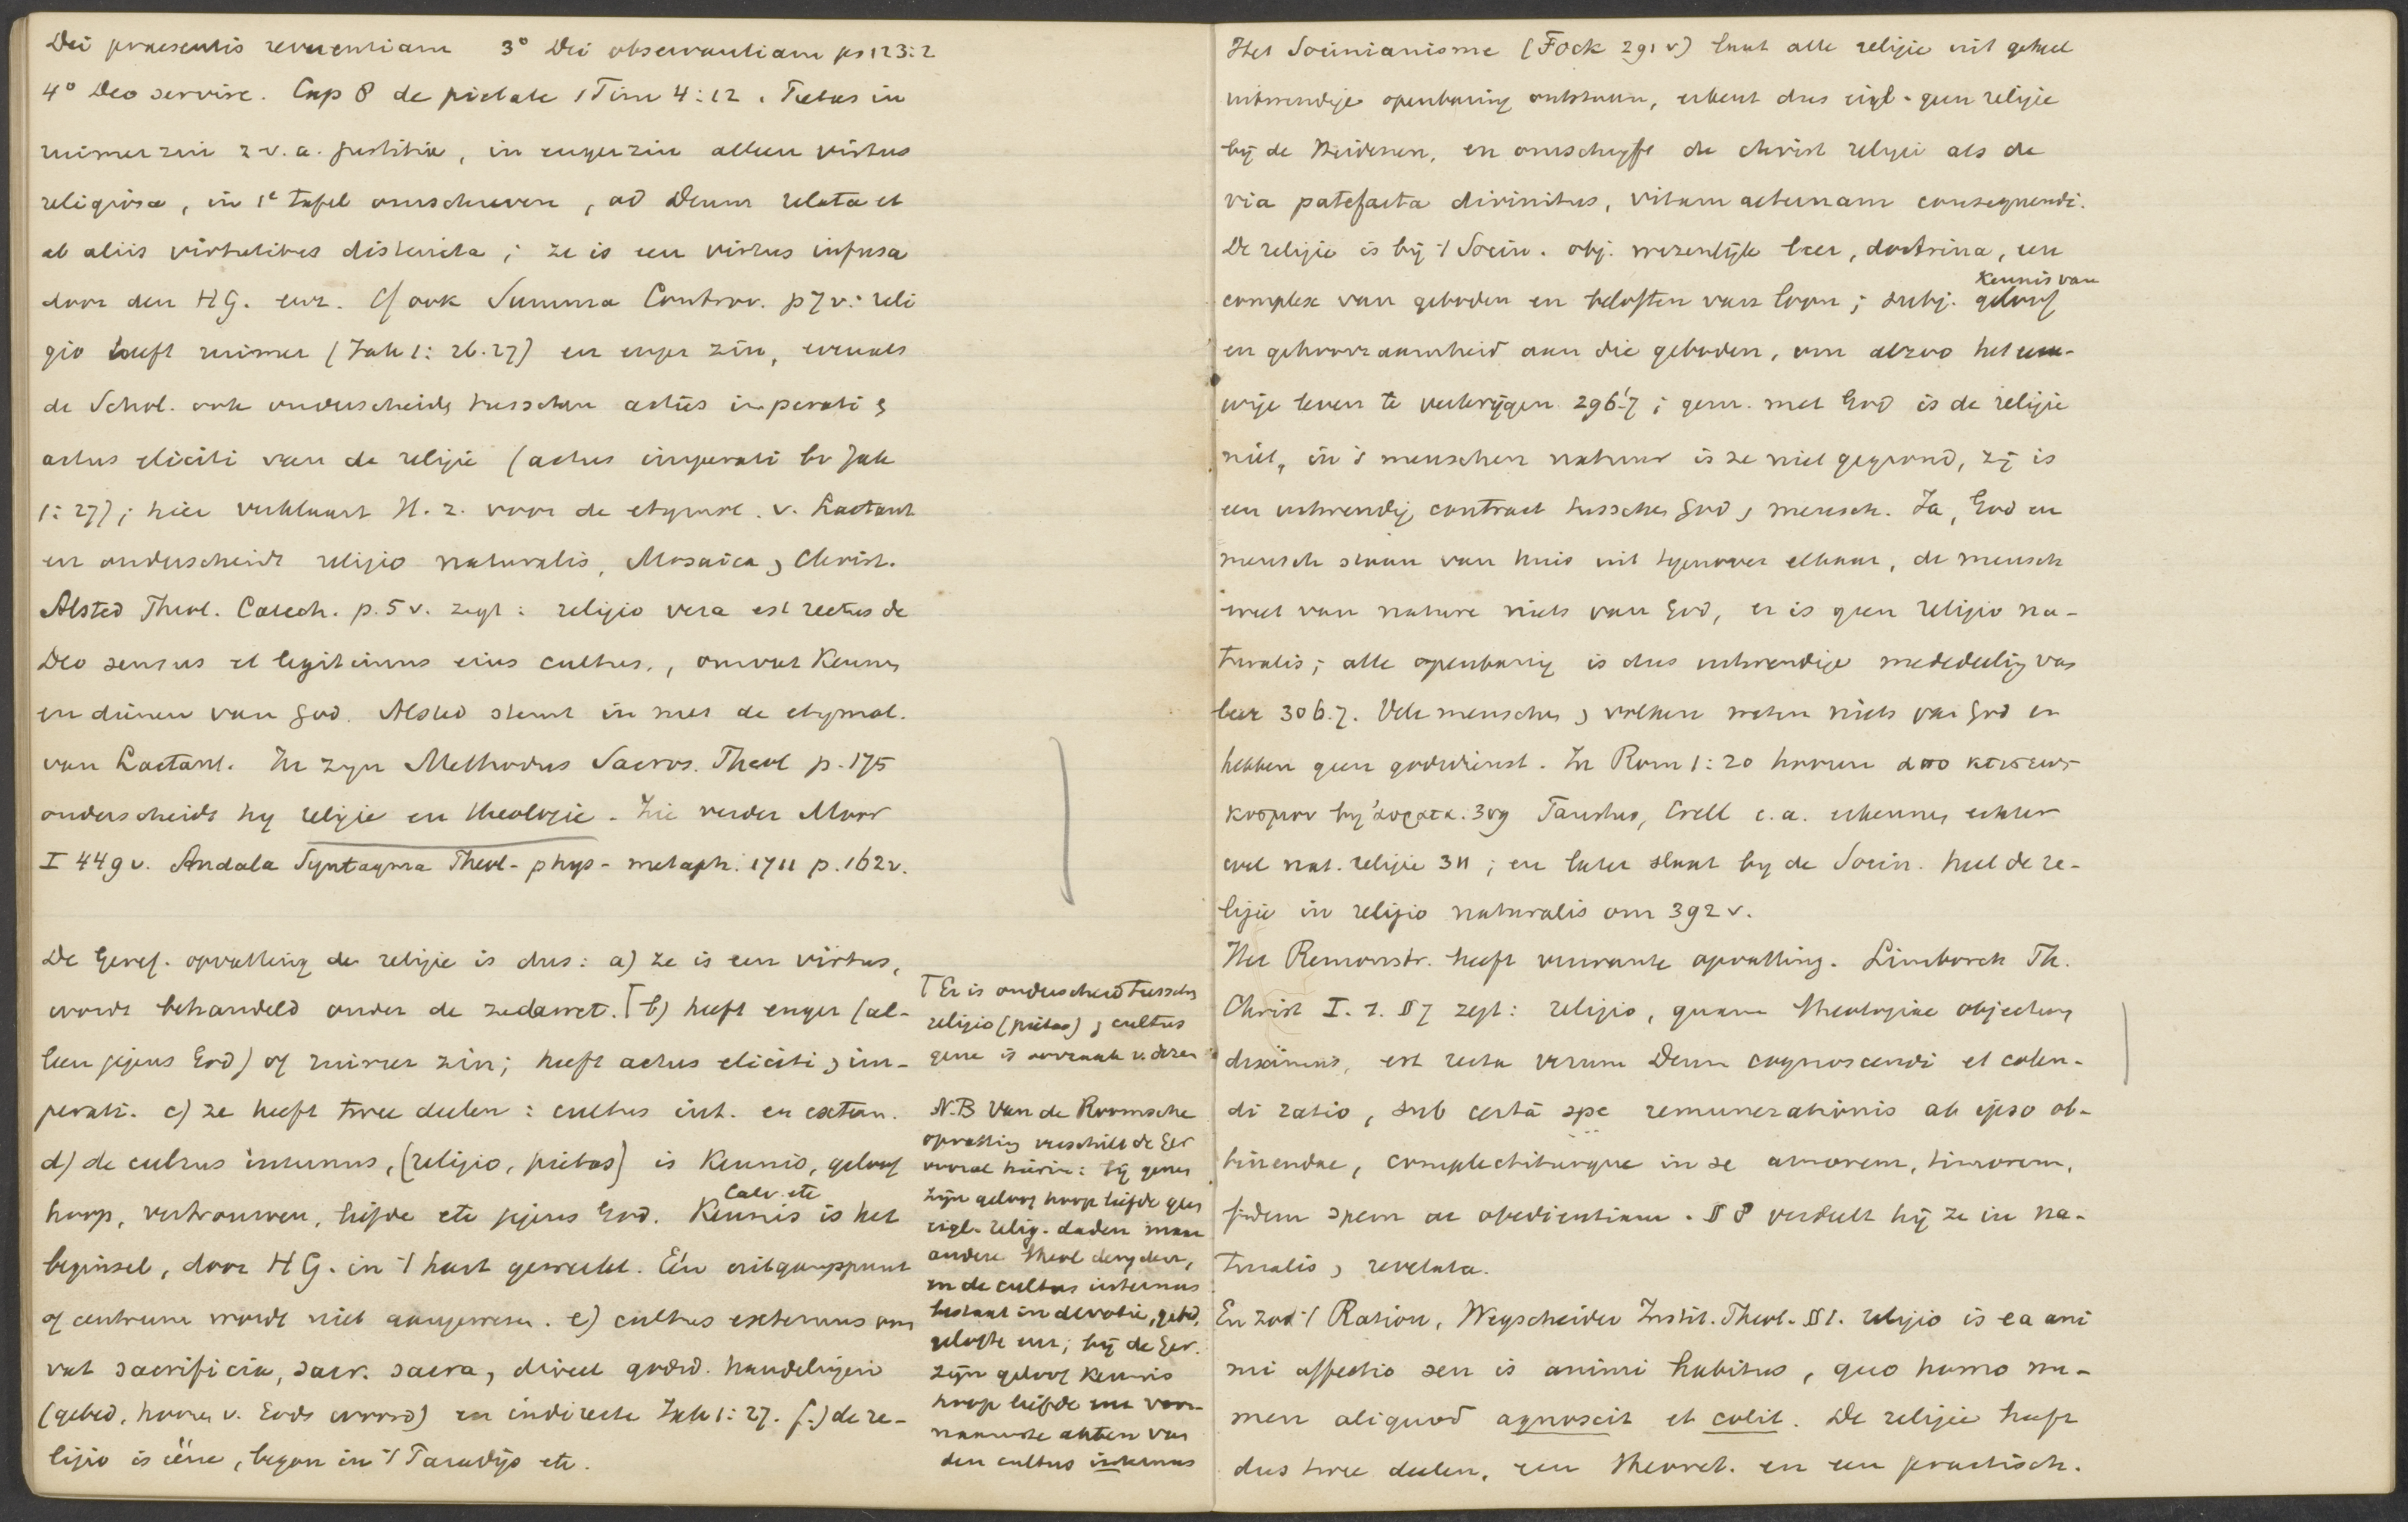 Dei praesentis reverentiam 3° Dei observantiam ps 123:2
4° Deo servire. Cap 8 de pietate 1 Tim 4:12. Pietas in
ruimer zin z.v.a. justitia, in enger zin alleen virtus
religiosa, in 1e tafel omschreven, ad Deum relata et
ab aliis virtutibus distincta; ze is een virtus infusa
door den HG. enz. Cf ook Summa Controv. p 7 v: reli
gio heeft ruimer (Jak 1:26.27) en enger zin, evenals
de Schol. ook onderscheidt tusschen actus imperati &
actus eliciti van de religie (actus imperati bv Jak
1:27); hier verklaart H. z. voor de etymol. v. Lactant
en onderscheidt religio naturalis, Mosaica, Christ.
Alsted Theol. Catech. p. 5 v. zegt: religio vera est rectus de
Deo sensus et legitimus eius cultus, omvat kennis
en dienen van God. Alsted stemt in met de etymol.
van Lactant. In zyn Methodus Sacros. Theol p. 175
onderscheidt hy religie en theologie. Zie verder Moor
I 449 v. Andala Syntagma Theol-phys-metaph. 1711 p. 162 v.
De Geref. opvatting der religie is dus: a) ze is een virtus,
wordt behandeld onder de zedewet. ⌈ b) heeft enger (al-
leen jegens God) of ruimer zin; heeft actus eliciti & im-
perati. c) ze heeft twee deelen: cultus int. en extern.
d) de cultus internus, (religio, pietas) is kennis, geloof
hoop, vertrouwen, liefde etc jegens God. Kennis is het
Calv. etc
beginsel, door HG. in 't hart gewerkt. Eén uitgangspunt
of centrum wordt niet aangewezen. e) cultus externus om
vat sacrificia, sacr. sacra, direct godsd. handelingen
(gebed, hooren v. Gods woord) en indirecte Jak 1:27. f.) de re-
ligio is ééne, began in 't Paradijs etc.
⌈ Er is onderscheid tusschen
religio (pietas) & cultus
gene is oorzaak v. dezen
N.B Van de Roomsche
opvatting verschilt de Ger
vooral hierin: bij genen
zijn geloof hoop liefde geen
eigl. relig. daden maar
andere theol deugden,
en de cultus internus
bestaat in devotie, gebed,
gelofte enz; bij de Ger.
zijn geloof kennis
hoop liefde enz voor-
naamste akten van
den cultus internus
Het Socinianisme (Fock 291 v) laat alle religie uit geheel
uitwendige openbaring ontstaan, erkent dus eigl. geen religie
bij de Heidenen, en omschrijft de christ religie als de
via patefacta divinitus, vitam aeternam consequendi.
De religie is bij 't Socin. obj. wezenlijk leer, doctrina, een
complex van geboden en beloften van loon; subj. geloof
kennis van
en gehoorzaamheid aan die geboden, om alzoo het eeu-
wige leven te verkrijgen 296-7; gem. met God is de religie
niet, in 's menschen natuur is ze niet gegrond, zij is
een uitwendig contract tusschen God & mensch. Ja, God en
mensch staan van huis uit tegenover elkaar, de mensch
weet van nature niets van God, er is geen religio na-
turalis; alle openbaring is dus uitwendige mededeeling van
leer 306.7. Vele menschen & volken weten niets van God en
hebben geen godsdienst. In Rom 1:20 hooren ἀπο κτισεως
κοσμου bij ἀορατα. 309 Faustus, Crell e.a. erkennen echter
wel nat. religie 311; en later slaat by de Socin. heel de re-
ligie in religio naturalis om 392 v.
Het Remonstr. heeft verwante opvatting. Limborch Th.
Christ I. 1. § 7 zegt: religio, quam theologiae objectum
diximus, est recta verum Deum cognoscendi et colen-
di ratio, sub certâ spe remunerationis ab ipso ob-
tinendae, complectiturque in se amorem, timorem,
fidem spem ac obedientiam. § 8 verdeelt hij ze in na-
turalis & revelata.
En zoo 't Ration, Wegscheider Instit. Theol. § 1. religio is ea ani
mi affectio seu is animi habitus, quo homo nu-
men aliquod agnoscit et colit. De religie heeft
dus twee deelen, een theoret. en een practisch.